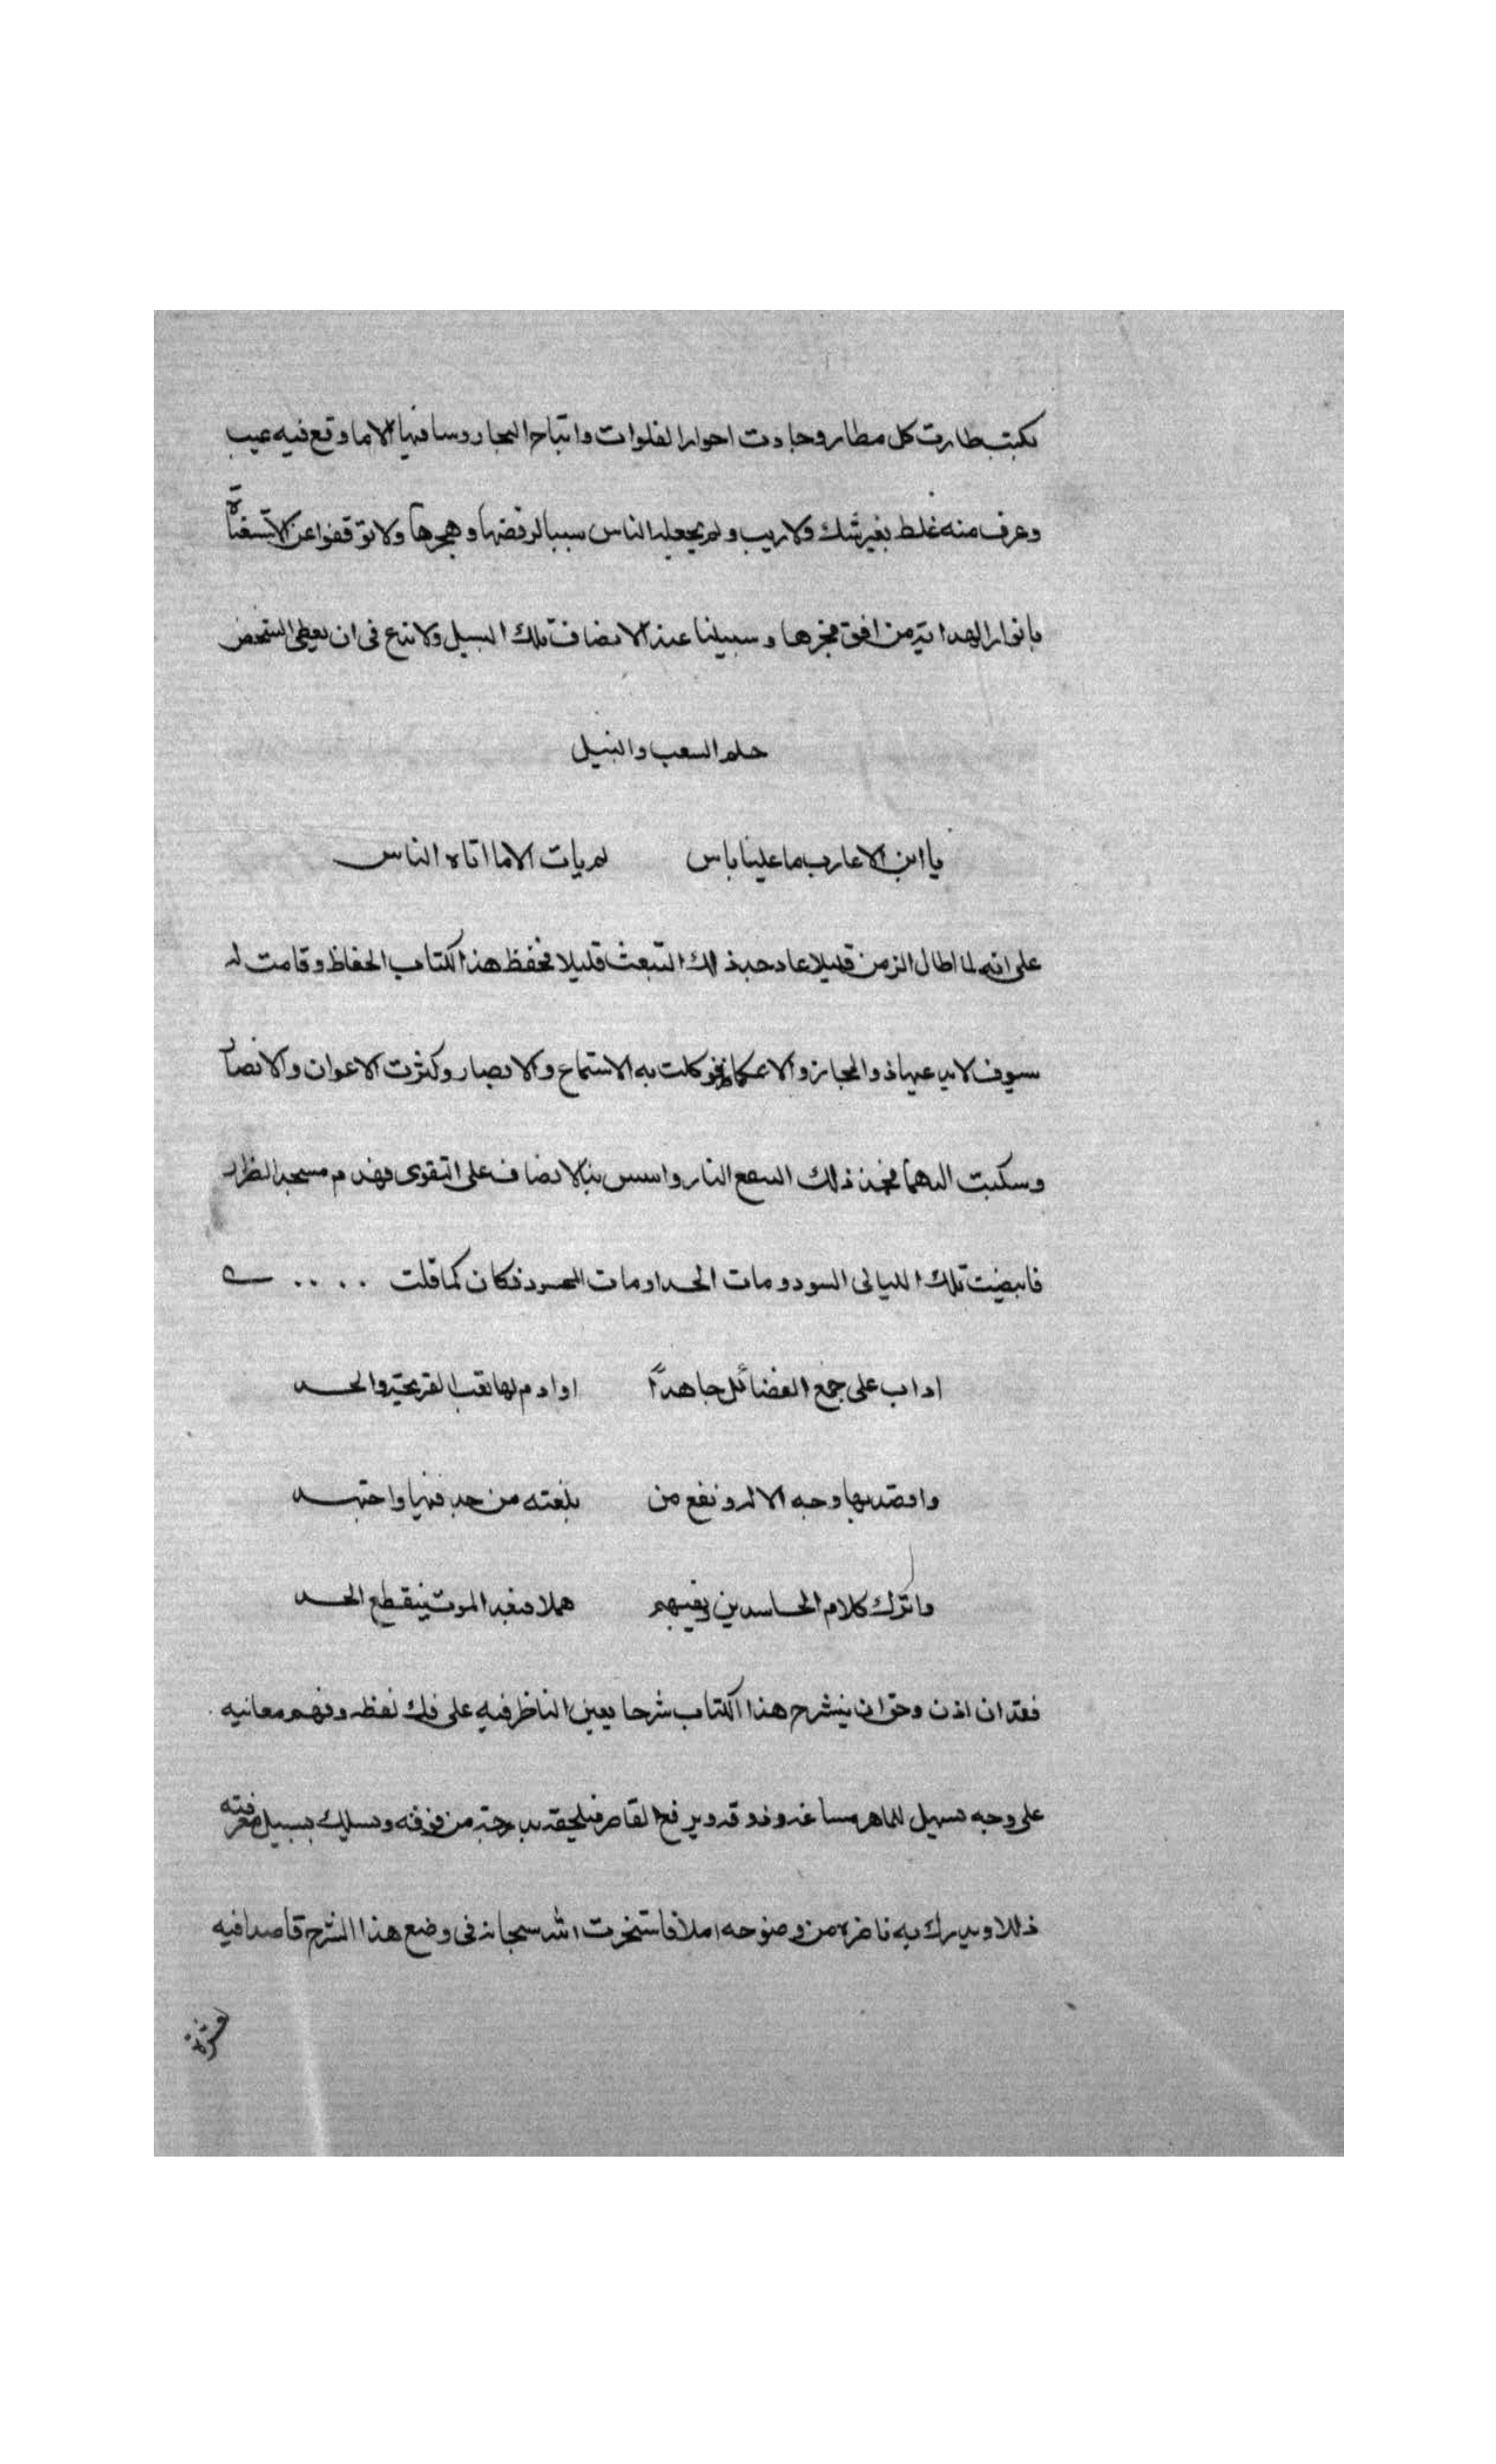 بكتب طارت كل مطار وجابت احوار الفلوات واتباح البحار وما فيها الا ما وقع فيه عيب
وعرف منه غلط بغير شك ولا ريب ولم يجعله الناس سببا لرفضها وهجرها ولا توقفوا عن الاستضاة
بانوار الهداية من افق فجرها وسبيلنا عند الانصاف تلك السبيل ولا بدع فى ان يعطى الشخص
حلم السعب والنبيل
يا ابن الاعارب ما علينا باس لم يات الا ما اتاه الناس
على انه لما طال الزمن قليلا عاد حبذ لك قليلا فحفظ هذا الكتاب الحفاظ وقامت له
سوق لا يدعيها ذو المجاز والا ووكلت به الاستماع والابصار وكثرت الاعوان والانصار
وسكبت الدهما فخمد ذلك النقع الثار واسس بنا الانصاف على التقوى فهدم مسجد الظرار
فابيضت تلك الليالى السود ومات الحسد او مات المحسود فكان كما قلت . . . .
اداب على جمع الفضائل جاهدًا وادم لها تعب القريحة والجسد
واقصد بها وجه الاله ونفع من بلغته من جد فيها واجتهد
واترك كلام الحاسدين وبغيهم هملا فبعد الموت ينقطع الحسد
فقد ان اذن وحق ان ينشرح هذا الكتاب شرحا يعين الناظر فيه على فك لفظه وفهم معانيه
على وجه يسهل للماهر مساغه وذوقه ويرفع القاصر فيلحقه بدرجة من فوقه ويسلك بسبيل معرفته
ذللا ويدرك به ناظره من وضوحه املا فاستخرت الله سبحانه فى وضع هذا الشرح قاصدا فيه